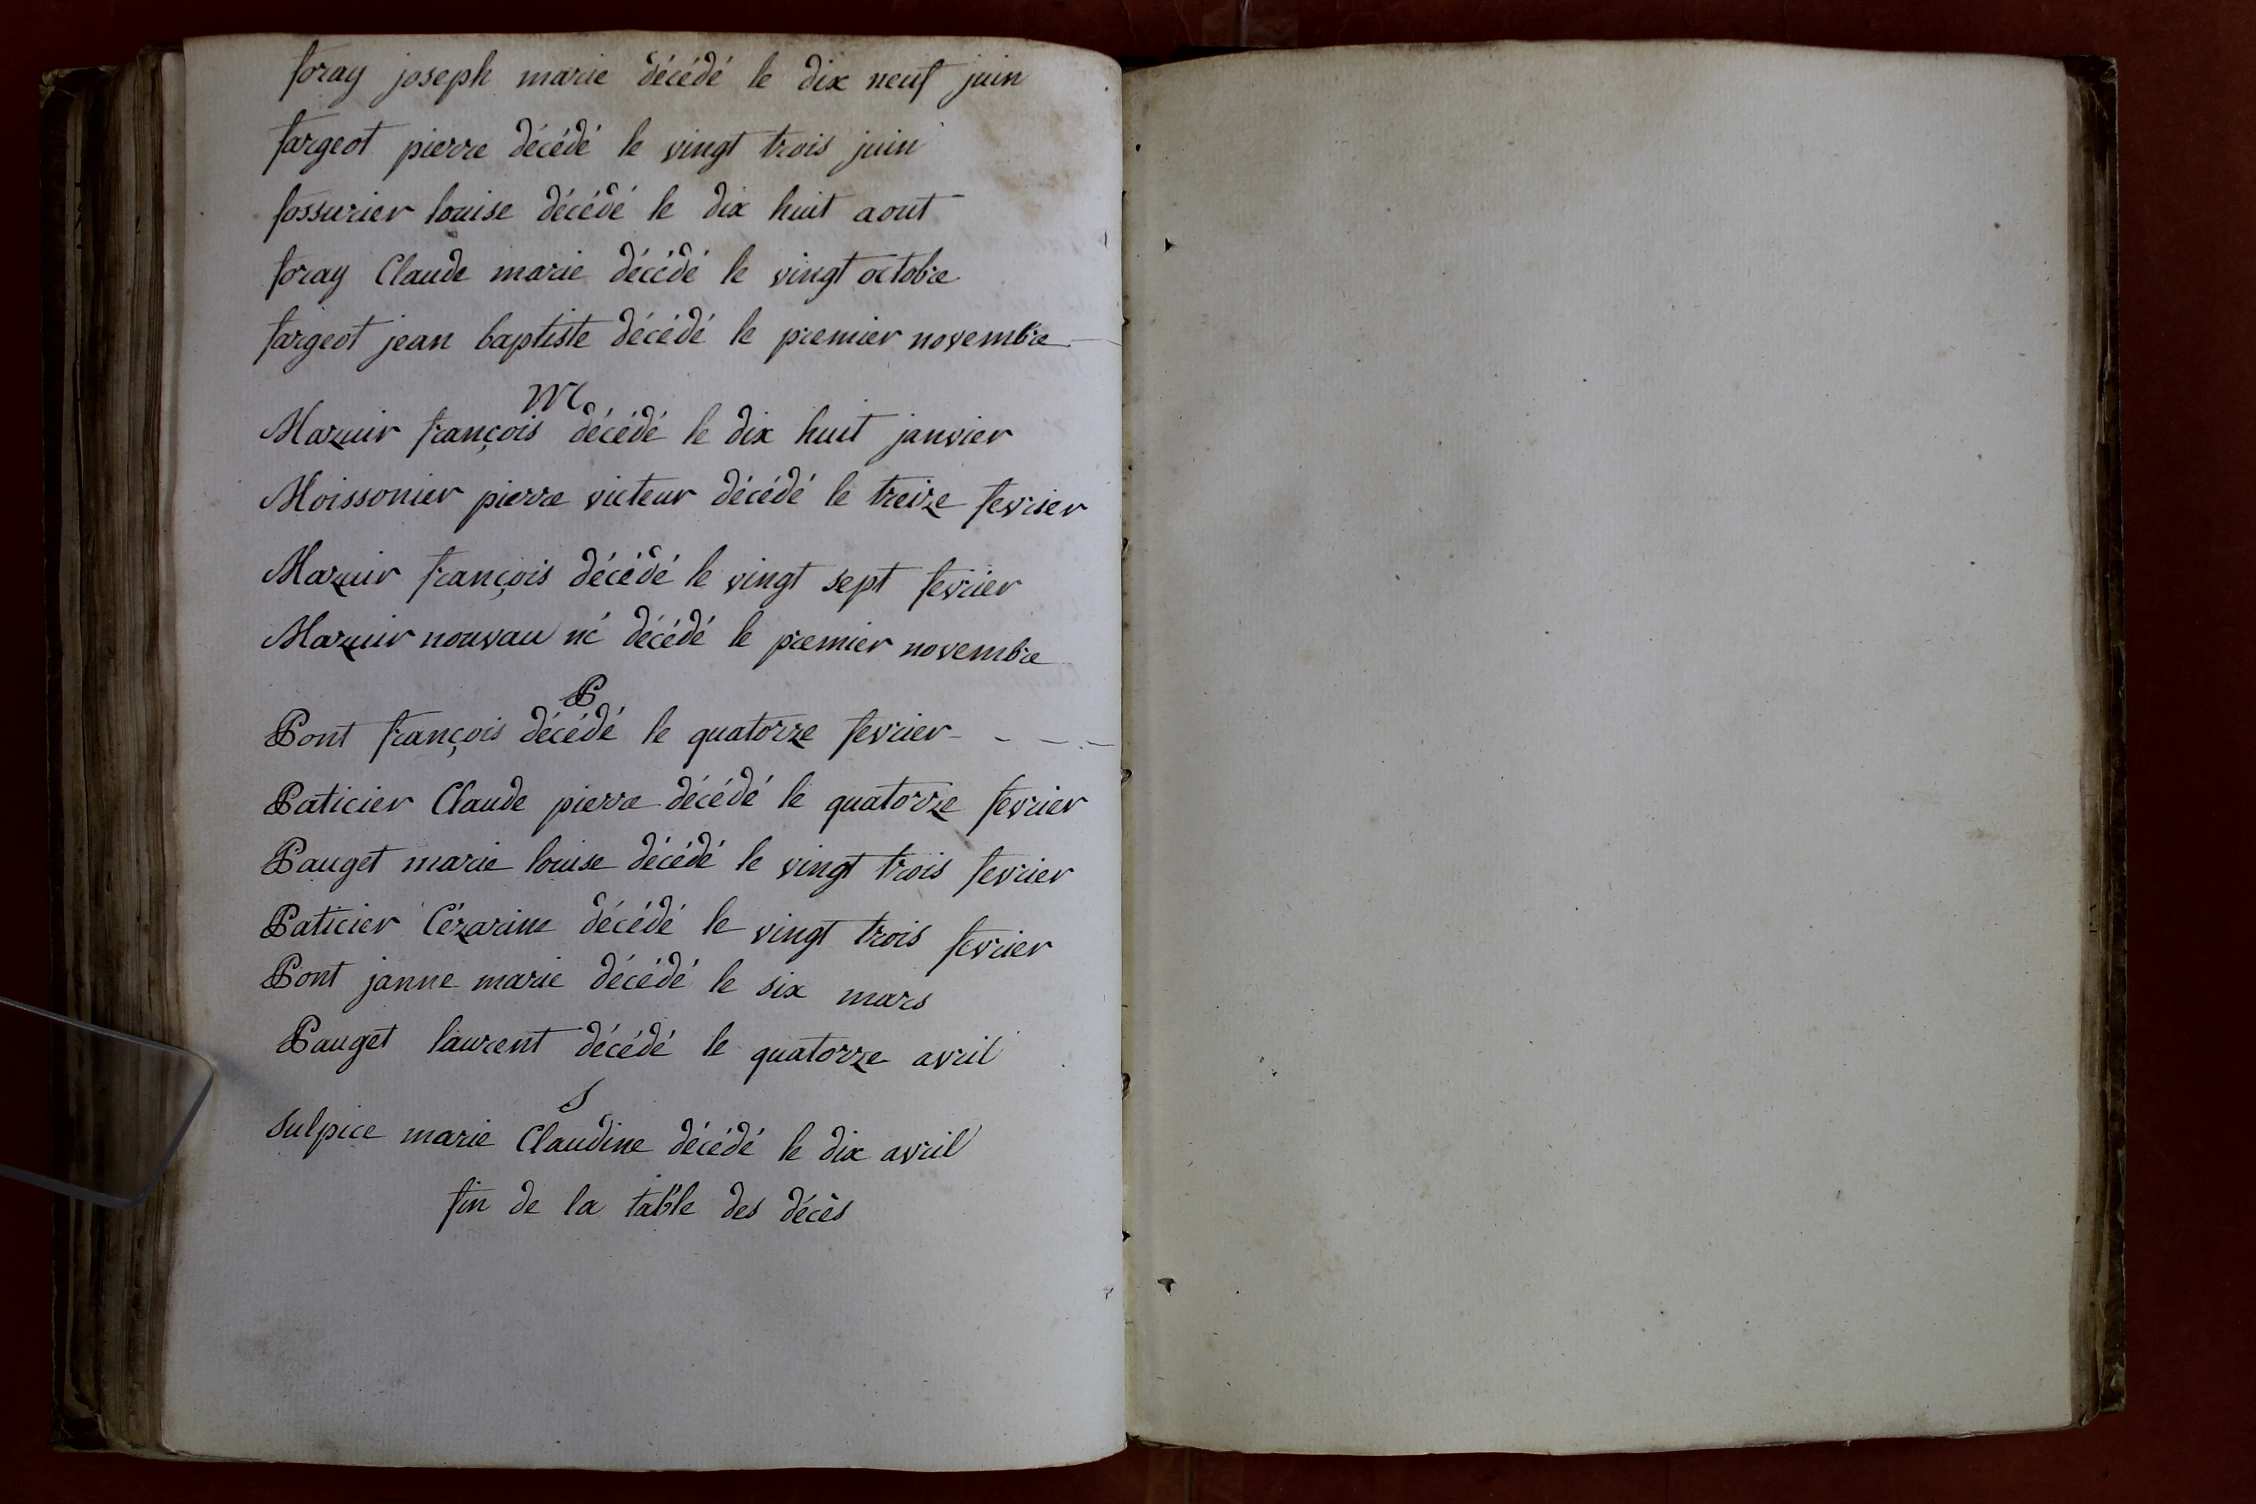 foray joseph marie décédé le dix neuf juin
fargeot pierre décédé le vingt trois juin
fossurier louise décédé le dix huit aout
foray Claude marie décédé le vingt octobre
fargeot jean baptiste décédé le premier novembre
M
Mazuir françois décédé le dix huit janvier
Moissonier pierre victeur décédé le treize fevrier
Mazuir françois décédé le vingt sept fevrier
Mazuir nouvau né décédé le premier novembre
P
Pont françois décédé le quatorze fevrier
Paticier Claude pierre décédé le quatorze fevrier
Pauget marie louise décédé le vingt trois fevrier
Paticier Cézarine décédé le vingt trois fevrier
Pont janne marie décédé le six mars
Pauget laurent décédé le quatorze avril
S
Sulpice marie Claudine décédé le dix avril
fin de la table des décès